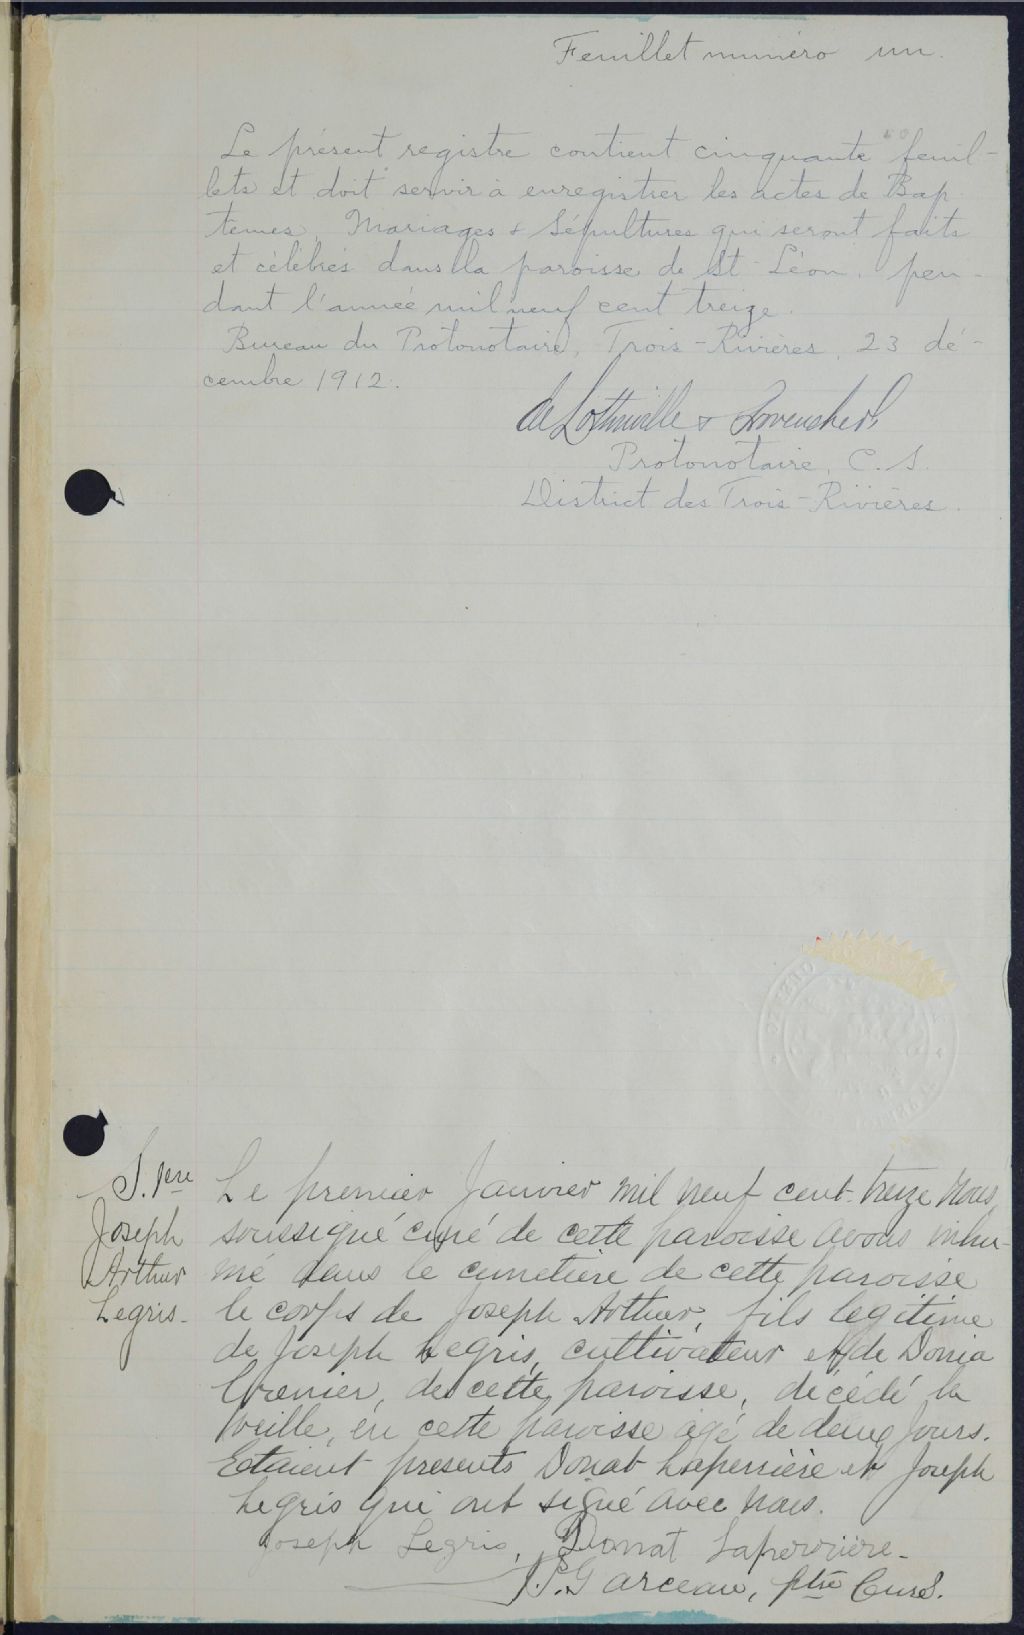 Feuillet numéro un.
Le présent registre contient cinquante feuil-
lets et doit servir à enregistrer les actes de Bap
têmes, Mariages & Sépultures qui seront faits
et célébrés dans la paroisse de St-Léon, pen-
dant l'année mil neuf cent treize.
Bureau du Protonotaire, Trois-Rivières, 23 dé-
cembre 1912.
de Lottinville &
Protonotaire, C. S.
District des Trois-Rivières.
S. 1ere
Joseph
Arthur
Legris-
Le premier Janvier mil neuf cent-treize nous
soussigné curé de cette paroisse avons inhu-
mé dans le cimetière de cette paroisse
le corps de Joseph Arthur, fils legitime
de Joseph Legris, cultivateur et de Donia
Grenier, de cette paroisse, décédé la
veille, en cette paroisse agé de deux jours.
Etaient presents Donat Laperrière et Joseph
Legris qui ont signé avec nous.
Joseph Legris, Donat Laperrière-
Garceau, ptre Curé.